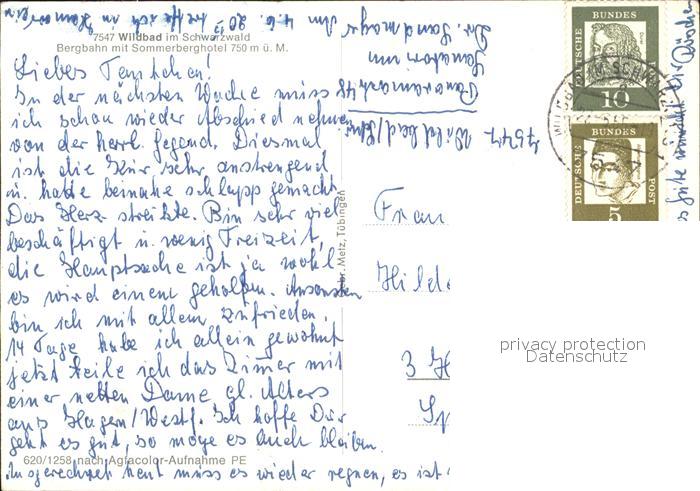 7547 Wildbad im Schwarzwald
Bergbahn mit Sommerberghotel 750 m ü. M.
Liebes Tantchen!
In der nächsten Woche muss
ich schon wieder Abschied nehmen
von der herrl. Gegend. Diesmal
ist die Kur sehr anstrengend
u. hatte beinahe schlapp gemacht.
Das Herz streikte. Bin sehr viel
beschäftigt u. wenig Freizeit,
die Hauptsache ist ja wohl
es wird einem geholfen. Ansonsten
bin ich mit allem zufrieden.
14 Tage habe ich allein gewohnt
jetzt teile ich das Zimmer mit
einer netten Dame gl. Alters
aus Hagen/Westf. Ich hoffe Dir
geht es gut, so möge es auch bleiben.
620/1258 nach Agfacolor-Aufnahme PE
Ausgerechnet heut muss es wieder regnen, es ist
Am 4.6. treffe ich in Hannover
ein.
Dr. Sandmayr
Sanatorium
Panoramastr. 48
7547 Wildbad/Schw.
Gebr. Metz, Tübingen
Frau
Hilde
3 H
Sp
DEUTSCHE BUNDES
10
DEUTSCHE BUNDES POST
5
privacy protection
Datenschutz